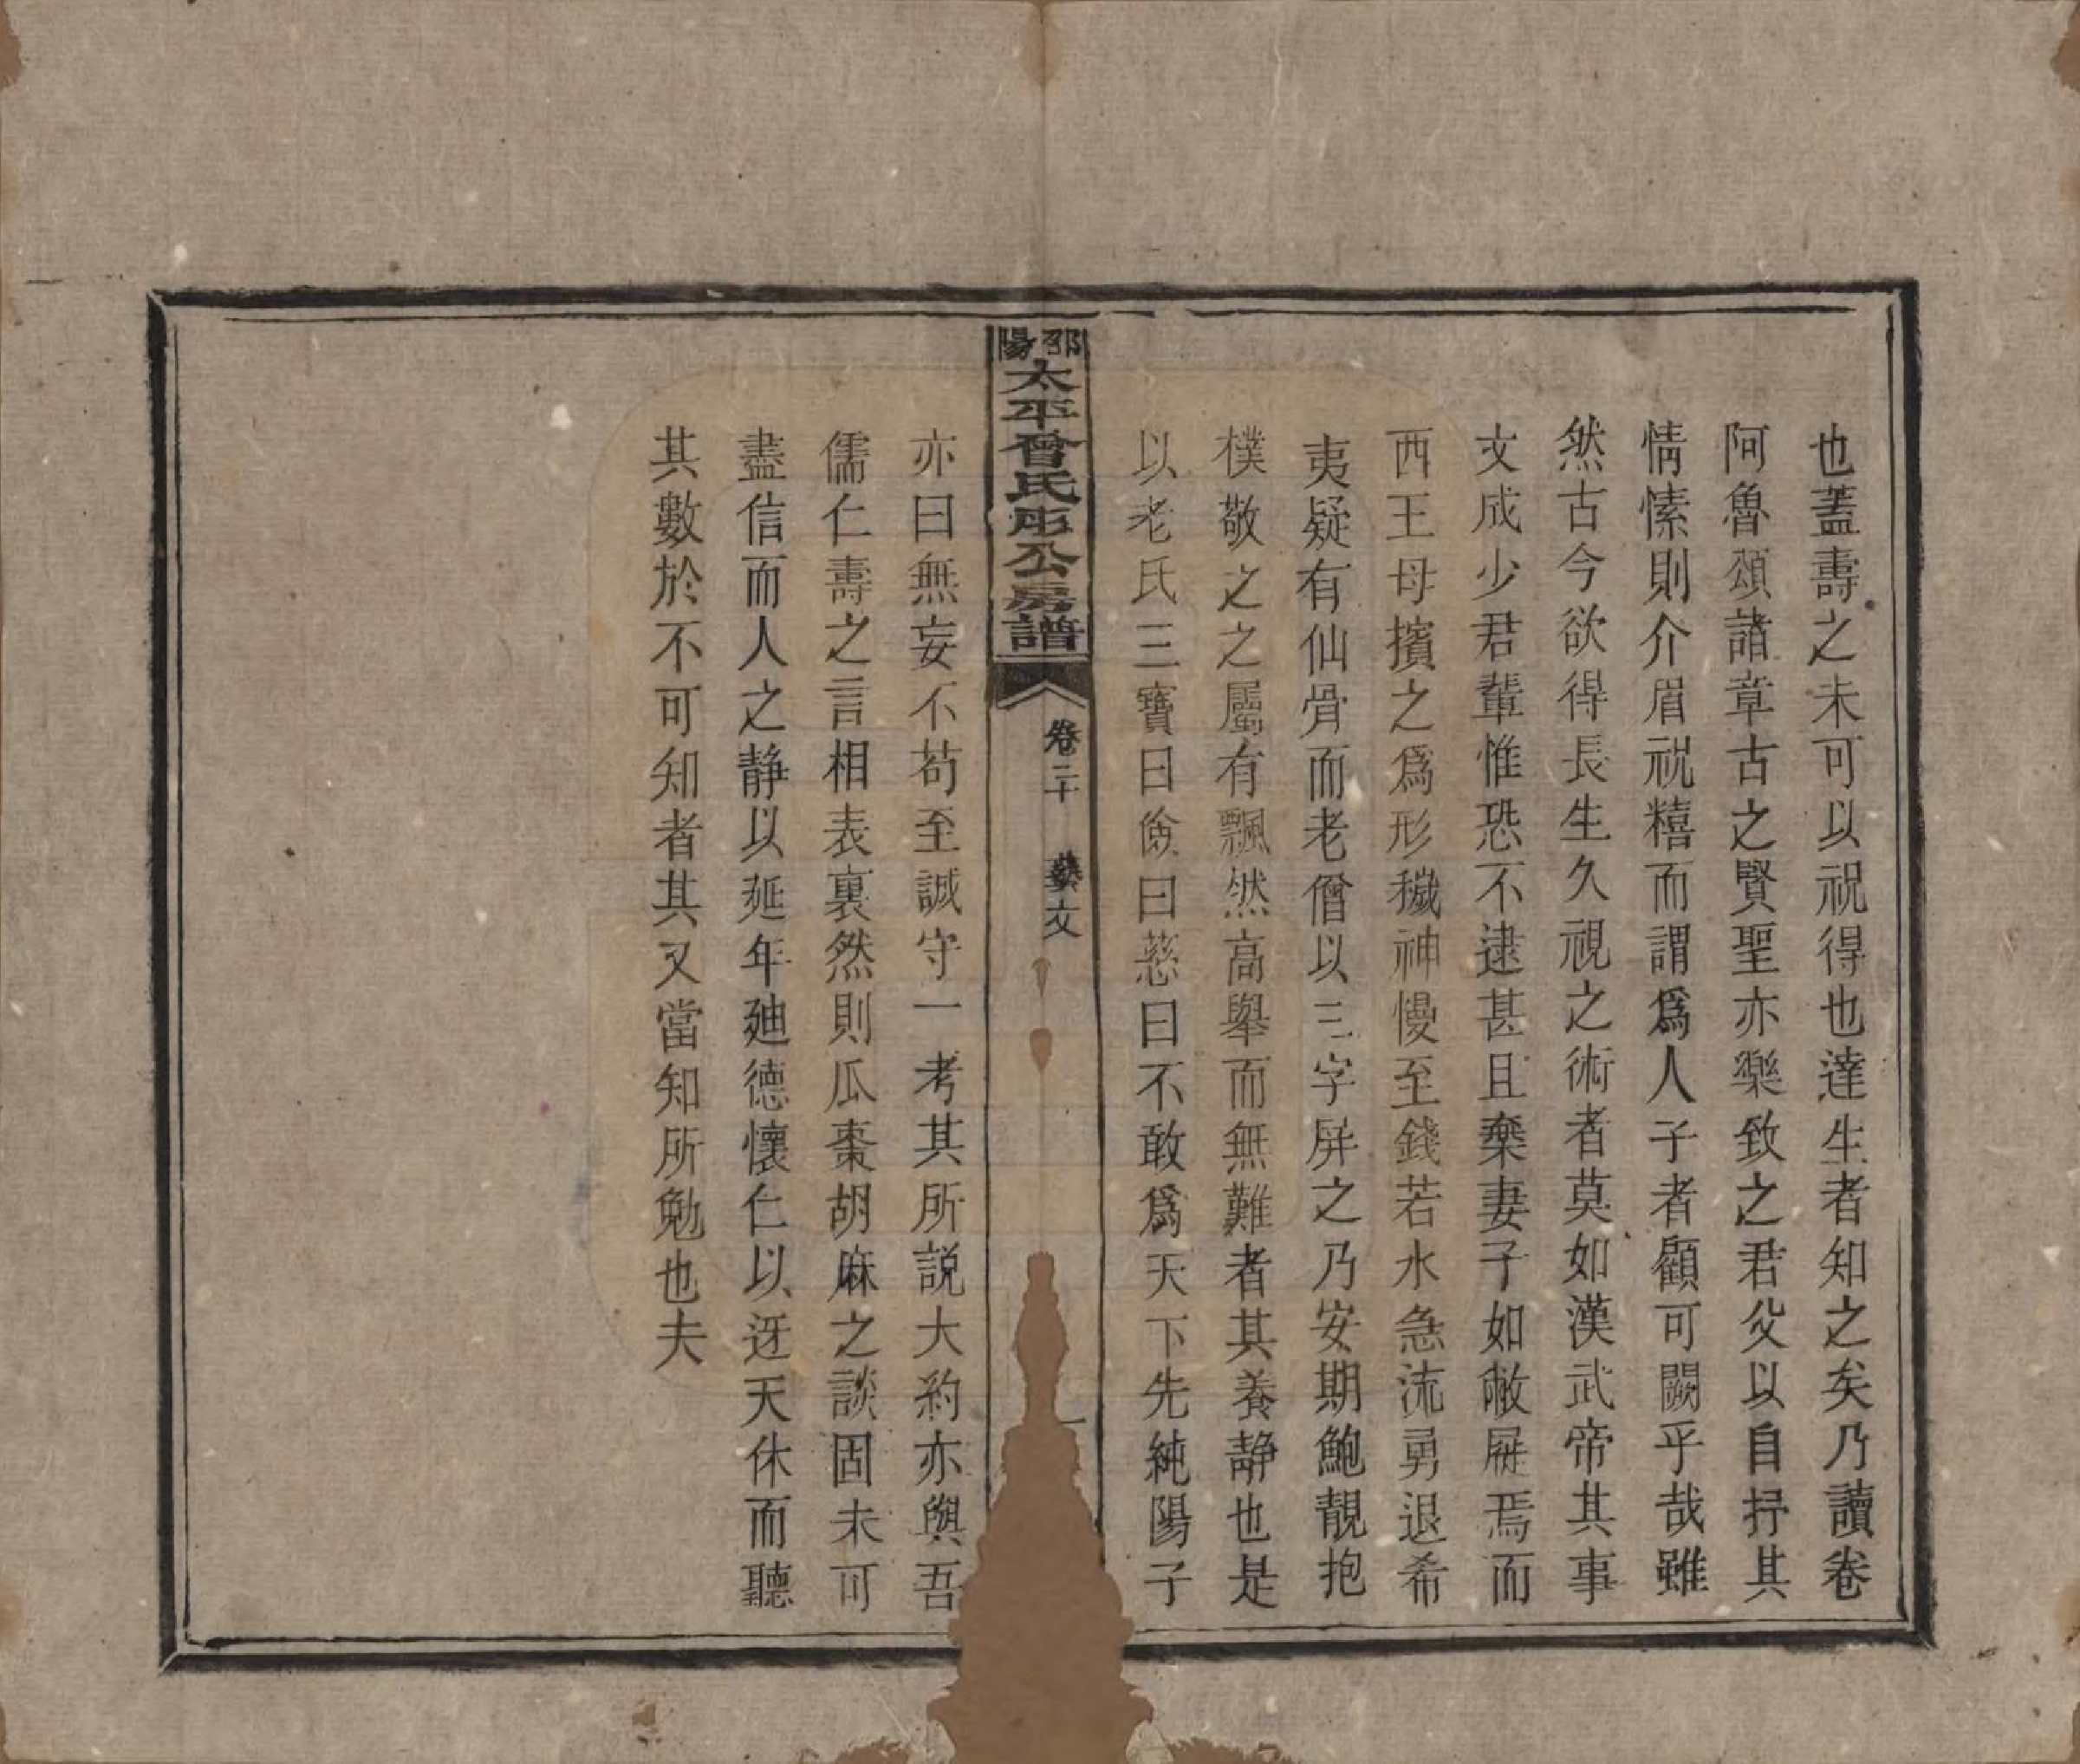 也蓋壽之未可以祝得也達生者知之矣乃讀卷
阿魯頌諸章古之賢聖亦樂致之君父以自抒其
情愫則介眉祝釐而謂爲人子者顧可闕乎哉雖
然古今欲得長生久視之術者莫如漢武帝其事
文成少君輩惟恐不逮甚且棄妻子如敝屣焉而
西王母擯之爲形穢神慢至錢若水急流勇退希
夷疑有仙骨而老僧以三字屏之乃安期鮑靚抱
樸敬之之屬有飄然高舉而無難者其養静也是
以老氏三寶曰儉曰慈曰不敢爲天下先純陽子
邵陽太平曾氏彤公房譜
卷二十 藝文
亦曰無妄不苟至誠守一考其所説大約亦與吾
儒仁壽之言相表裏然則瓜棗胡麻之談固未可
盡信而人之静以延年廸德懷仁以迓天休而聽
其數於不可知者其又當知所勉也夫